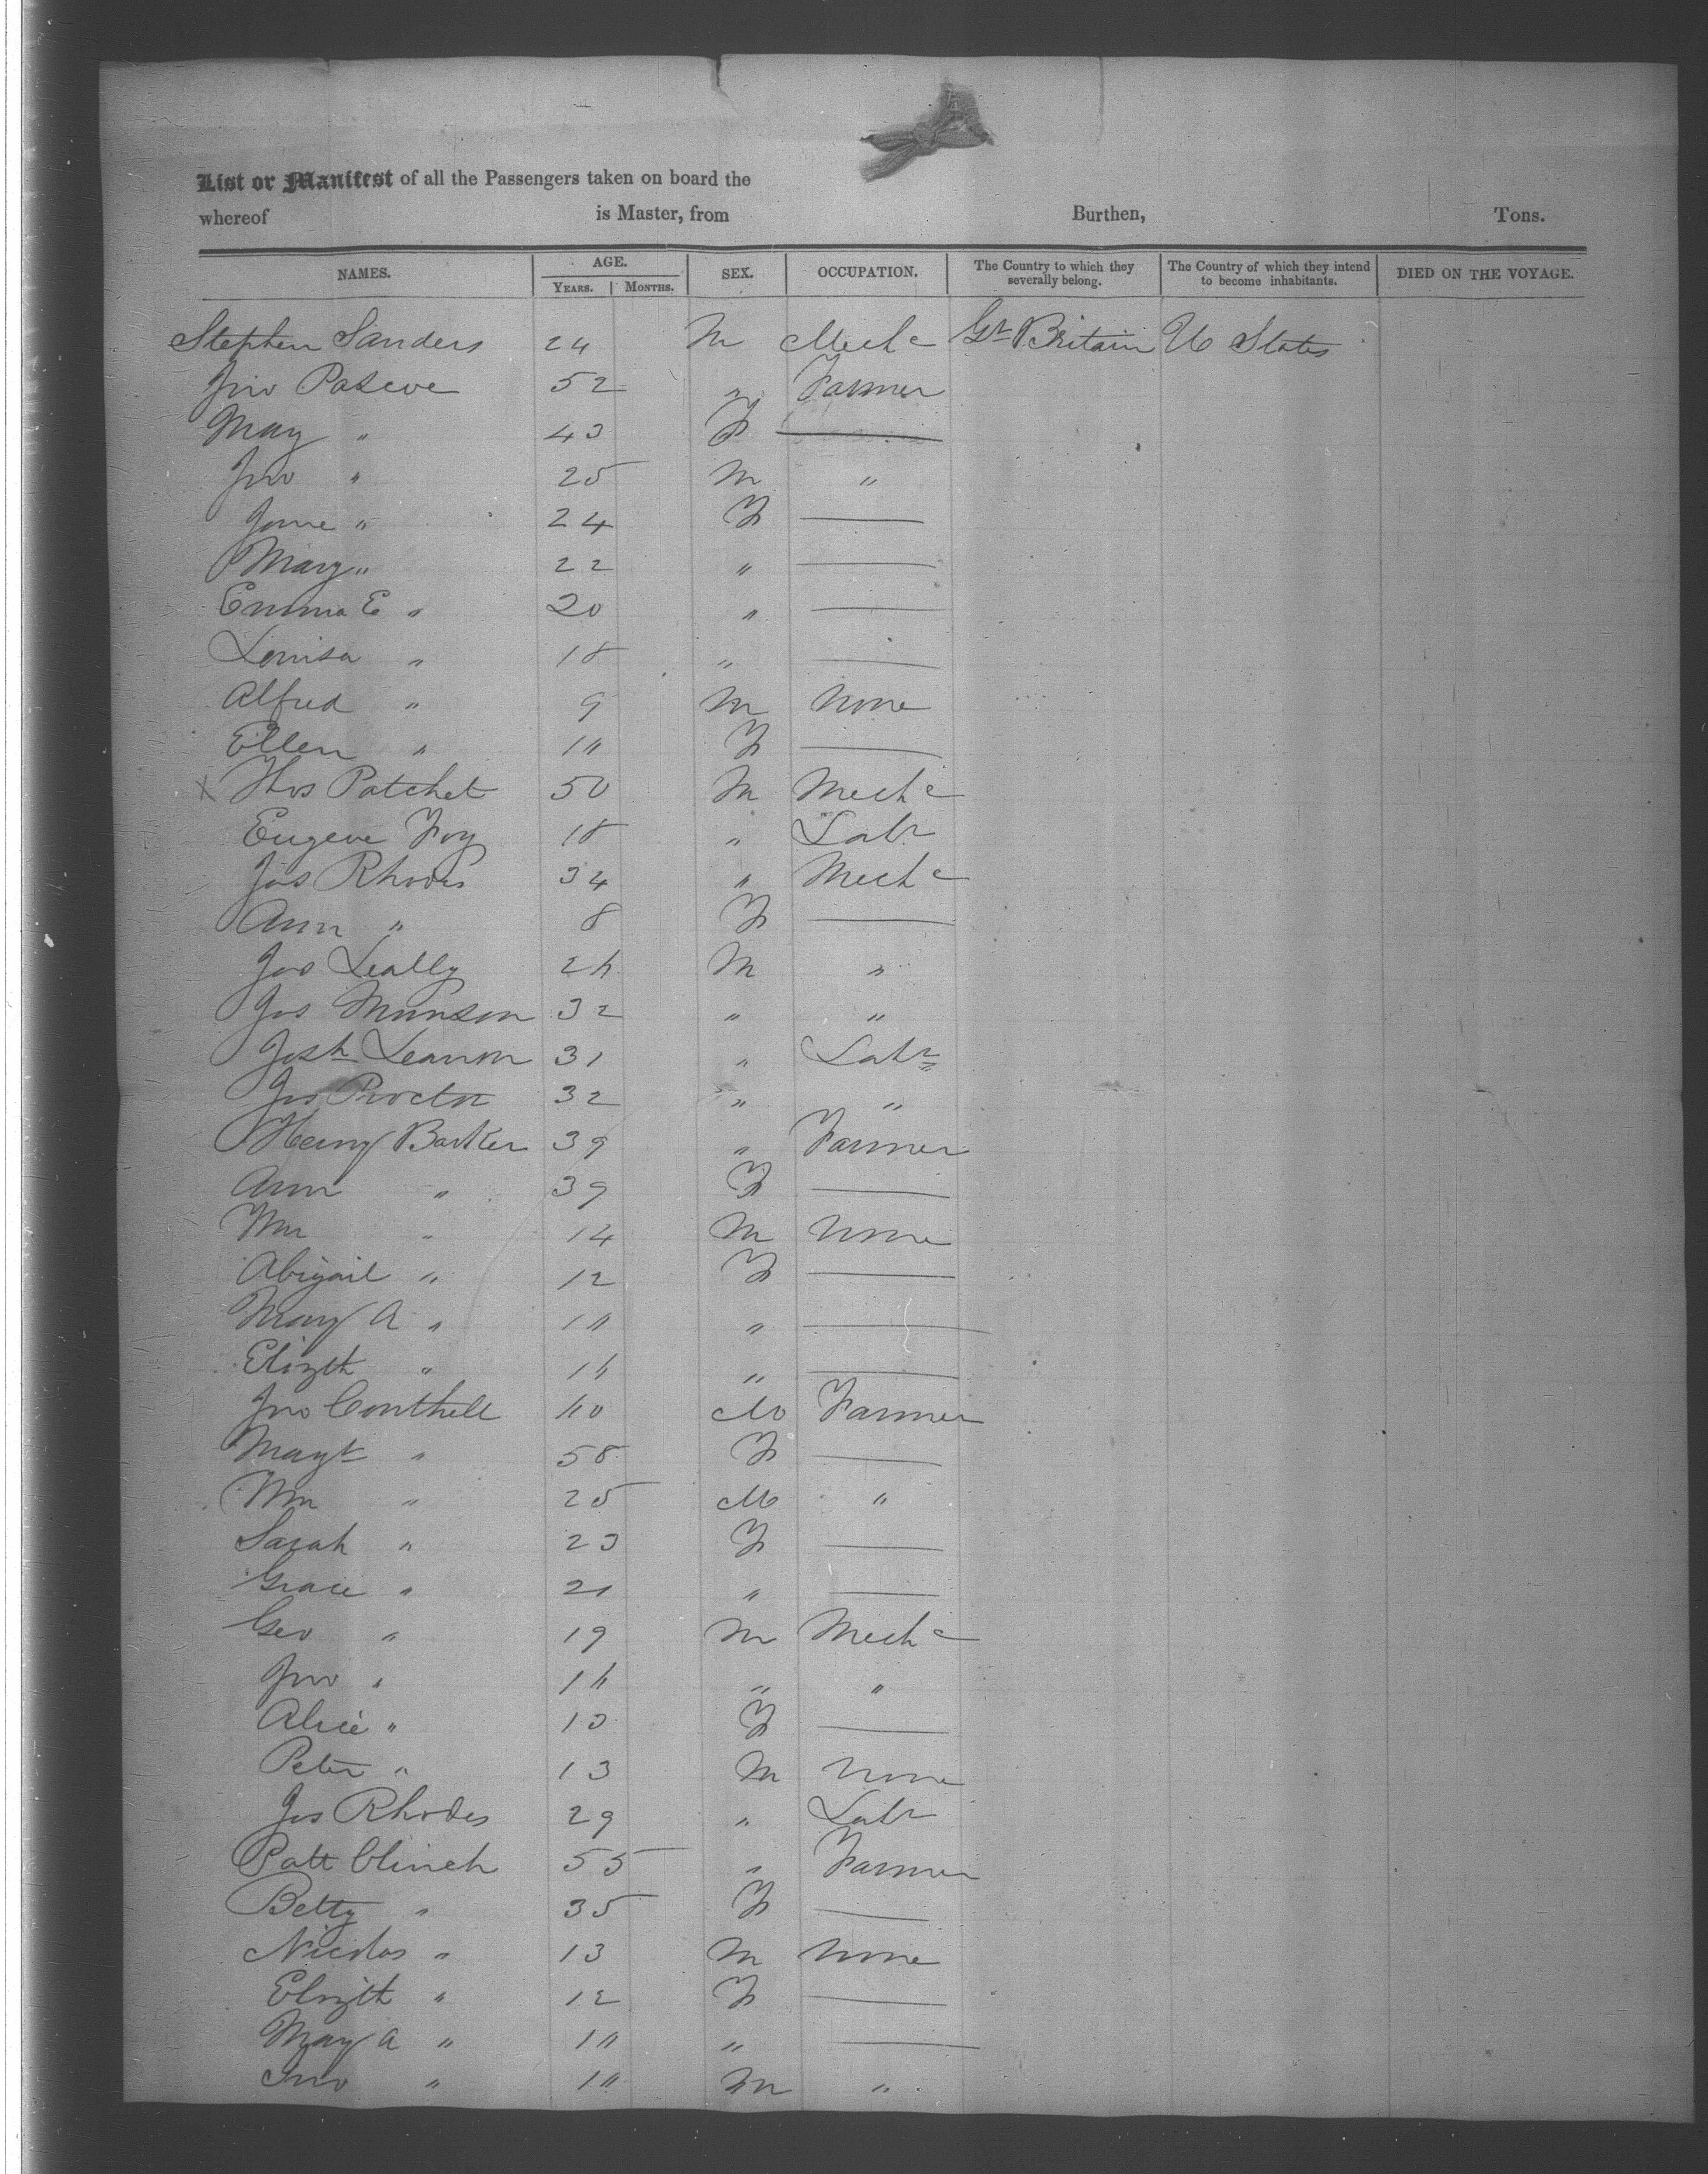 List or Manifest of all the Passengers taken on board the
whereof is Master, from Burthen, Tons.
NAMES. AGE. YEARS. MONTHS. SEX. OCCUPATION. The Country to which they severally belong. The Country of which they intend to become inhabitants. DIED ON THE VOYAGE.
Stephen Sanders 24 M Mech c Gt Britain U States
Jno Pascoe 52 " Farmer
Mary " 43 F —
Jno " 25 M "
Jane " 24 F —
Mary " 22 " —
Emma E " 20 " —
Louisa " 18 " —
Alfred " 9 M None
Ellen " 11 F —
X Thos Patchet 50 M Mech c
Eugene Foy 18 " Labr
Jas Rhodes 34 " Mech c
Ann " 8 F —
Jas Leally M "
Jas Munson 32 " "
Josh Leanon 31 " Labr
Jas Proctor 32 " "
Henry Barker 39 " Farmer
Ann " 39 F —
Wm " 14 M None
Abigail " 12 F —
Mary A " 11 " —
Elizth " " —
Jno Couthell M Farmer
Margt " 58 F —
Wm " 25 M "
Sarah " 23 F —
Grace " 21 " —
Geo " 19 M Mech c
Jno " " "
Alice " F —
Peter " 13 M None
Jos Rhodes 29 " Labr
Patt Clinch 55 " Farmer
Betty " 35 F —
Nicolas " 13 M None
Elizth " 12 F —
Mary A " 11 " —
Jno " 11 M "